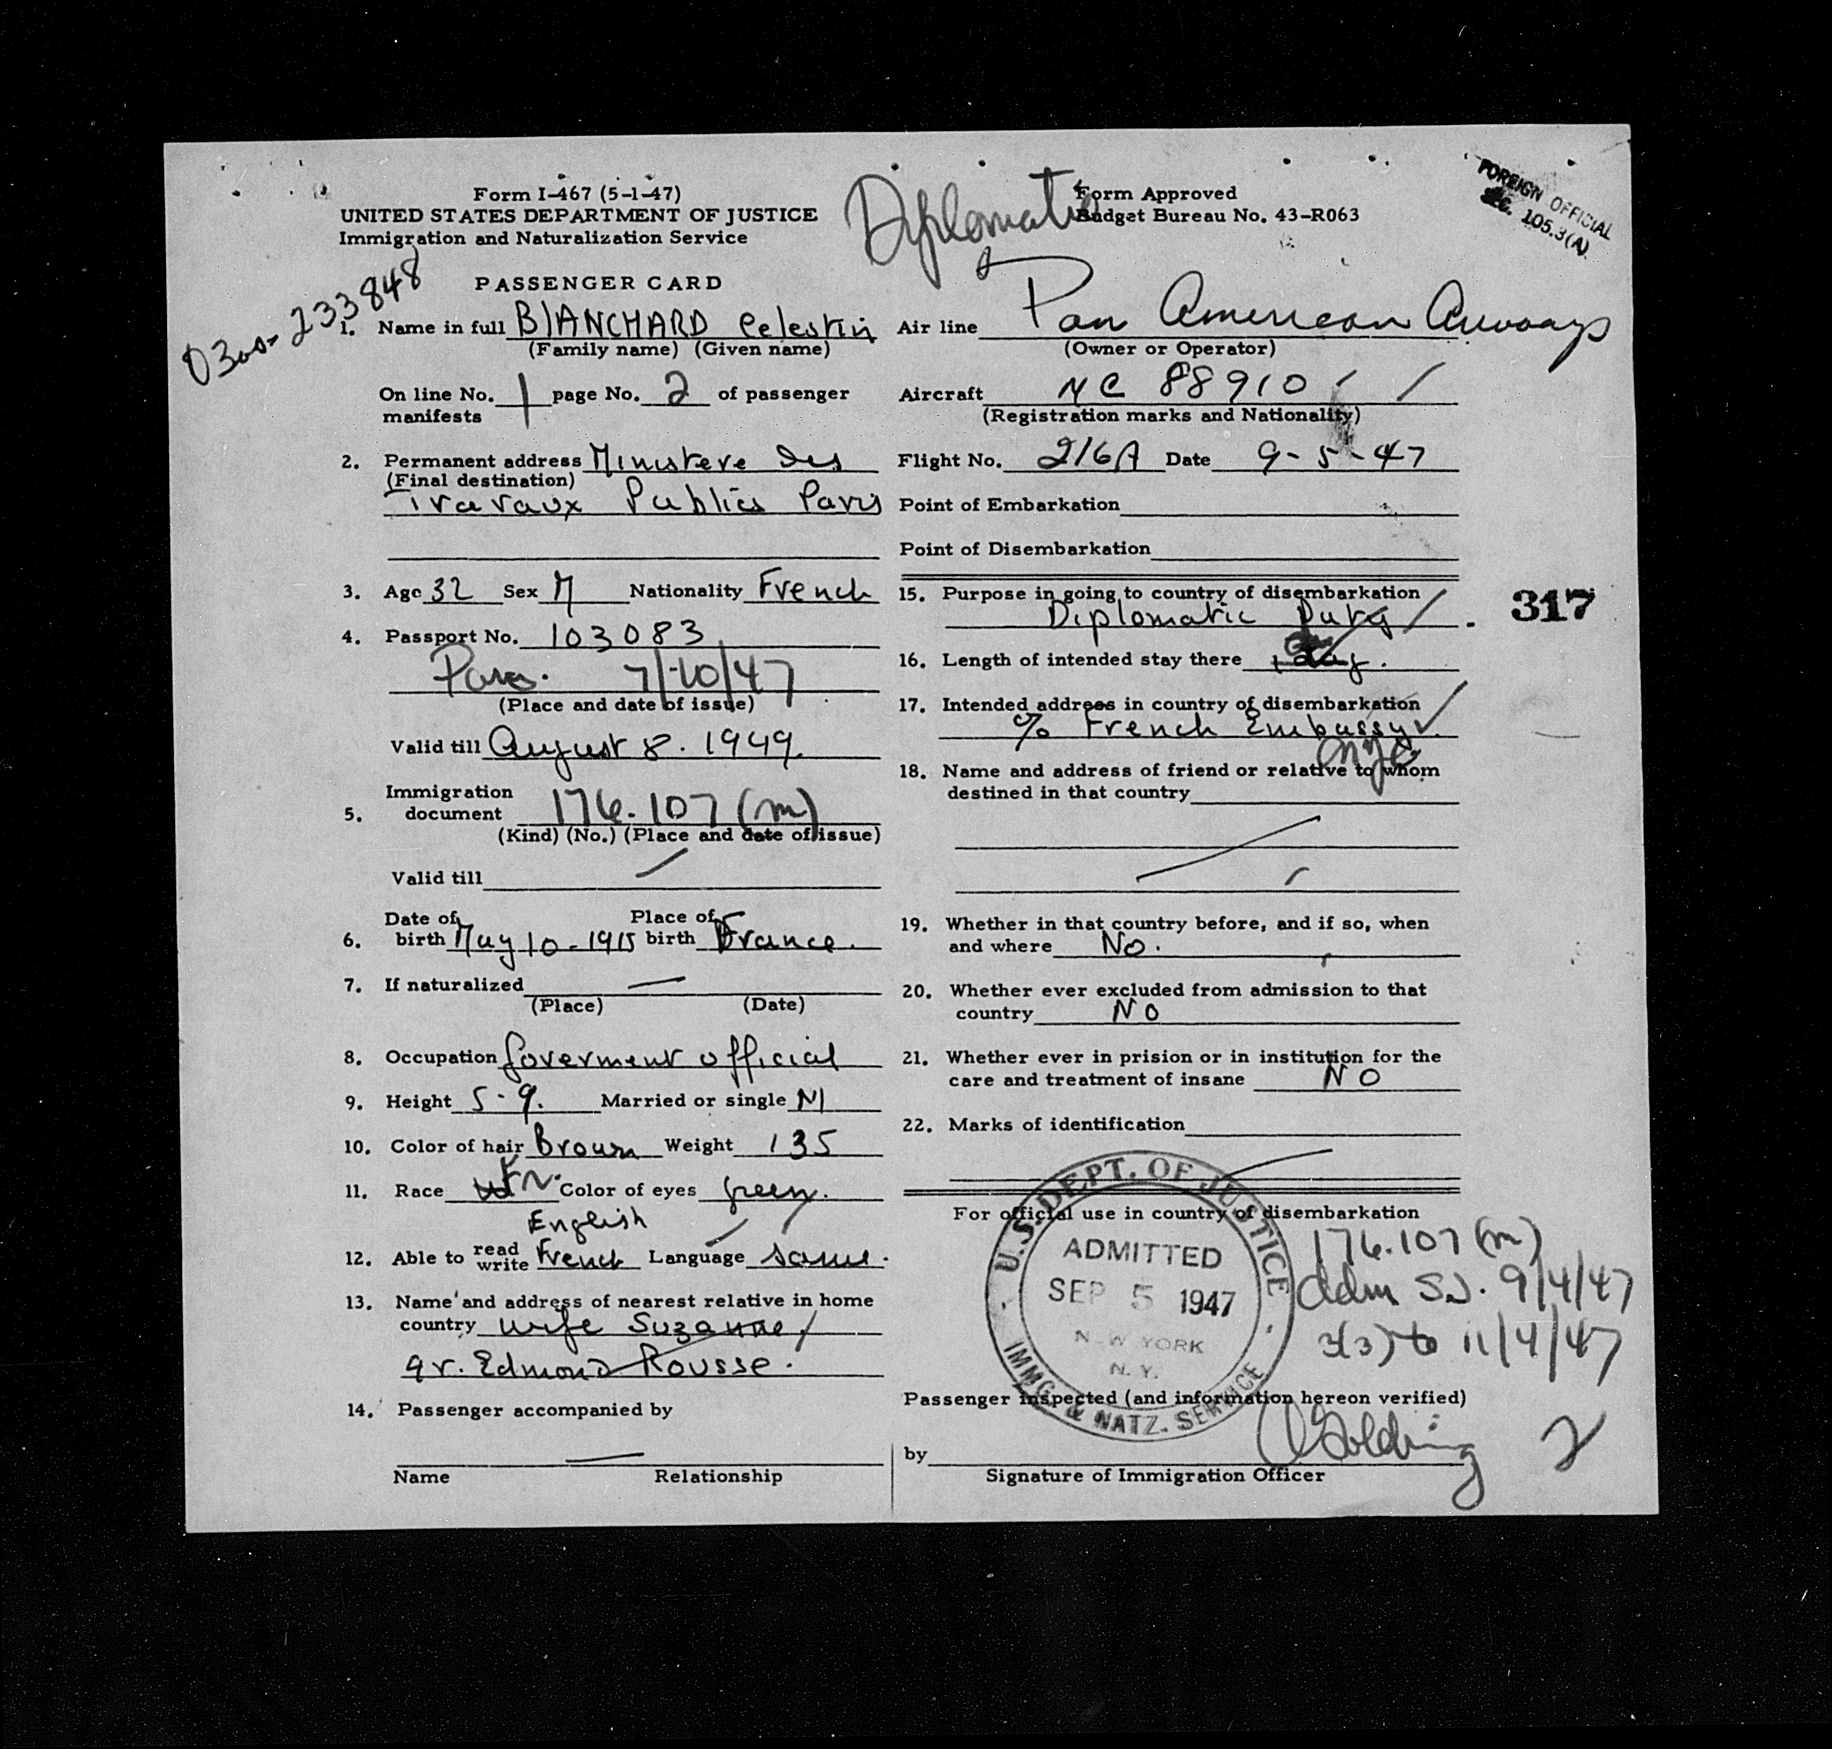 Form I-467 (5-1-47)
UNITED STATES DEPARTMENT OF JUSTICE
Immigration and Naturalization Service
Diplomatic
Form Approved
Budget Bureau No. 43-R063
FOREIGN OFFICIAL
SEC. 105.3(A)
0300-233848
PASSENGER CARD
1. Name in full BlANCHARD Celestin
(Family name) (Given name)
On line No. 1 page No. 2 of passenger
manifests
2. Permanent address Ministere des
(Final destination)
Travaux Publics Paris
3. Age 32 Sex M Nationality French
4. Passport No. 103083
Paris. 7/10/47
(Place and date of issue)
Valid till August 8. 1949.
Immigration
5. document 176.107 (m)
(Kind) (No.) (Place and date of issue)
Valid till
Date of Place of
6. birth May 10-1915 birth France.
7. If naturalized —
(Place) (Date)
8. Occupation Goverment official
9. Height 5-9. Married or single M
10. Color of hair Brown Weight 135
11. Race Fr. Color of eyes green.
English
12. Able to read write French Language same.
13. Name and address of nearest relative in home
country wife Suzanne,
9 r. Edmond Rousse.
14. Passenger accompanied by
—
Name Relationship
Air line Pan American Airways
(Owner or Operator)
Aircraft NC 88910
(Registration marks and Nationality)
Flight No. 216A Date 9-5-47
Point of Embarkation
Point of Disembarkation
15. Purpose in going to country of disembarkation
Diplomatic Duty
317
16. Length of intended stay there
17. Intended address in country of disembarkation
c/o French Embassy
NYC
18. Name and address of friend or relative to whom
destined in that country
19. Whether in that country before, and if so, when
and where No.
20. Whether ever excluded from admission to that
country NO
21. Whether ever in prision or in institution for the
care and treatment of insane NO
22. Marks of identification
For official use in country of disembarkation
U.S. DEPT. OF JUSTICE
ADMITTED
SEP 5 1947
NEW YORK
N. Y.
IMMG. & NATZ. SERVICE
176.107 (m)
Adm S.D. 9/4/47
3(3) to 11/4/47
Passenger inspected (and information hereon verified)
by Golding 2
Signature of Immigration Officer